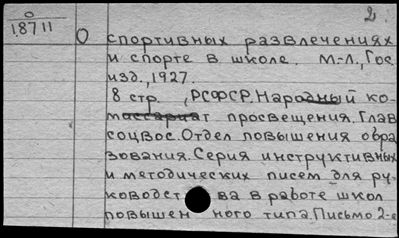 0
18711
2.
О спортивных развлечениях
и спорте в школе. М.-Л., Гос.
изд., 1927.
8 стр. , РСФСР. Народный ко-
миссариат просвещения. Глав
соцвос. Отдел повышения обра
зования. Серия инструктивных
и методических писем для ру-
ководст ва в работе школ
повышен ного типа. Письмо 2-е